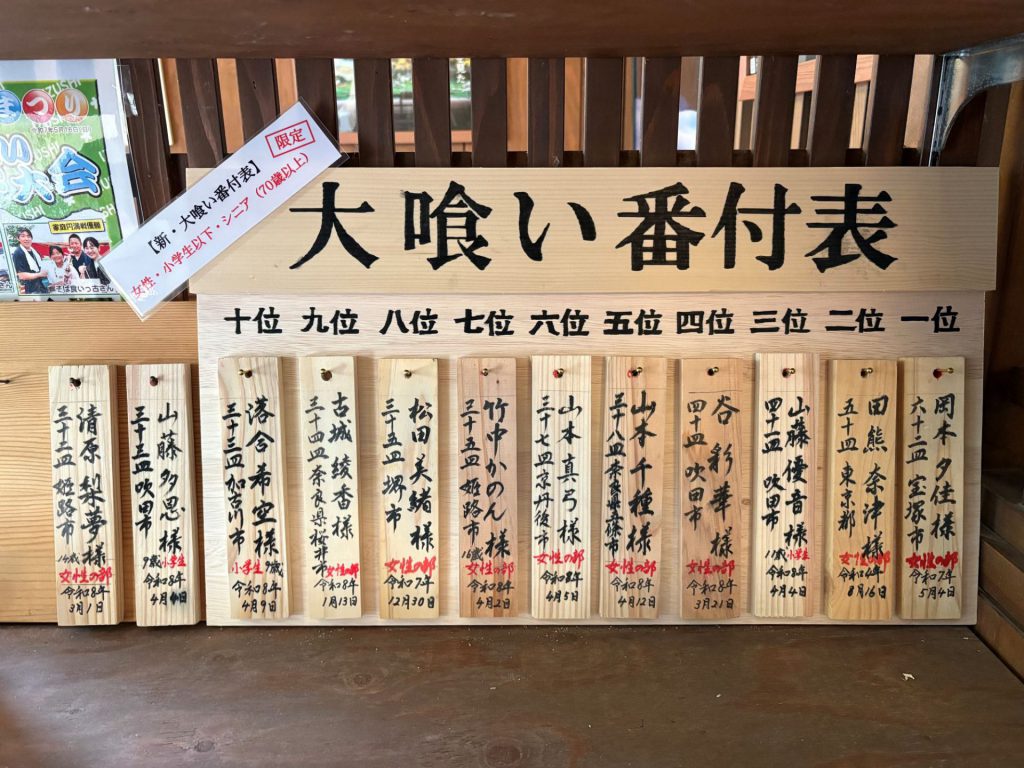 大喰い番付表
【新・大喰い番付表】
限定
女性・小学生以下・シニア（70歳以上）
一位
岡本夕佳様
六十二皿 宝塚市
女性の部
令和7年
5月4日
二位
田熊奈津様
五十四皿 東京都
女性の部
8月16日
三位
山藤優音様
四十二皿 吹田市
11歳 小学生
令和8年
4月4日
四位
谷彩華様
四十皿 吹田市
女性の部
令和8年
3月21日
五位
山本千種様
三十八皿
女性の部
令和8年
4月12日
六位
山本真弓様
三十七皿 京丹後市
女性の部
令和8年
4月5日
七位
竹中かのん様
三十五皿 姫路市
16歳
女性の部
令和8年
4月2日
八位
松田美緒様
三十五皿 堺市
女性の部
令和7年
12月30日
九位
古城綾香様
三十四皿 奈良県桜井市
女性の部
令和8年
1月13日
十位
落合希空様
三十三皿 加古川市
小学生 9歳
令和8年
4月9日
山藤多恵様
三十三皿 吹田市
9歳 小学生
令和8年
4月4日
清原梨夢様
三十二皿 姫路市
14歳
女性の部
令和8年
3月1日
まつり
い
大会
家庭円満戦優勝
そば食いっ古さん